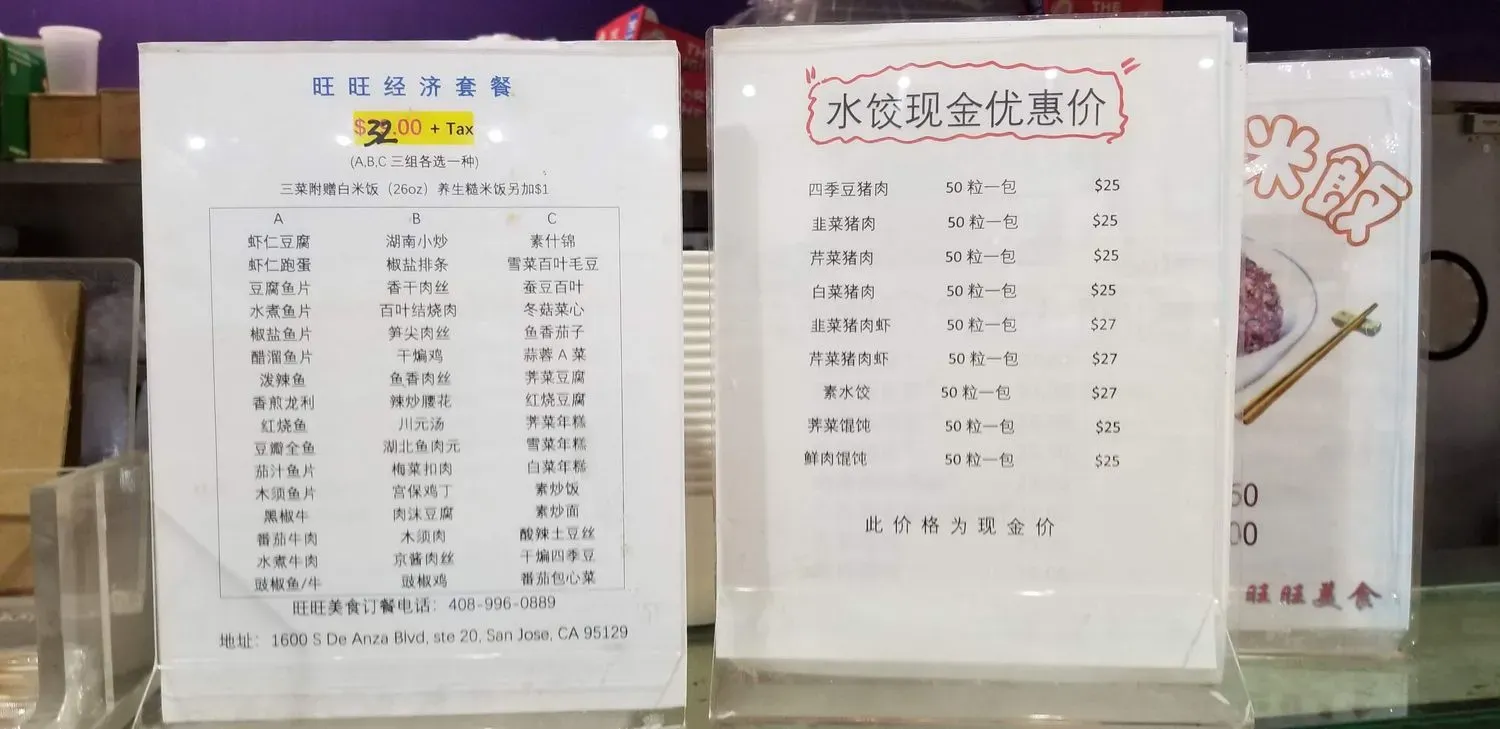 旺旺经济套餐
$32.00 + Tax
(A,B,C 三组各选一种)
三菜附赠白米饭（26oz）养生糙米饭另加$1
A B C
虾仁豆腐 湖南小炒 素什锦
虾仁跑蛋 椒盐排条 雪菜百叶毛豆
豆腐鱼片 香干肉丝 蚕豆百叶
水煮鱼片 百叶结烧肉 冬菇菜心
椒盐鱼片 笋尖肉丝 鱼香茄子
醋溜鱼片 干煸鸡 蒜蓉 A 菜
泼辣鱼 鱼香肉丝 荠菜豆腐
香煎龙利 辣炒腰花 红烧豆腐
红烧鱼 川元汤 荠菜年糕
豆瓣全鱼 湖北鱼肉元 雪菜年糕
茄汁鱼片 梅菜扣肉 白菜年糕
木须鱼片 宫保鸡丁 素炒饭
黑椒牛 肉沫豆腐 素炒面
番茄牛肉 木须肉 酸辣土豆丝
水煮牛肉 京酱肉丝 干煸四季豆
豉椒鱼/牛 豉椒鸡 番茄包心菜
旺旺美食订餐电话：408-996-0889
地址：1600 S De Anza Blvd, ste 20, San Jose, CA 95129
水饺现金优惠价
四季豆猪肉 50 粒一包 $25
韭菜猪肉 50 粒一包 $25
芹菜猪肉 50 粒一包 $25
白菜猪肉 50 粒一包 $25
韭菜猪肉虾 50 粒一包 $27
芹菜猪肉虾 50 粒一包 $27
素水饺 50 粒一包 $27
荠菜馄饨 50 粒一包 $25
鲜肉馄饨 50 粒一包 $25
此价格为现金价
米飯
50
00
旺旺美食
THE